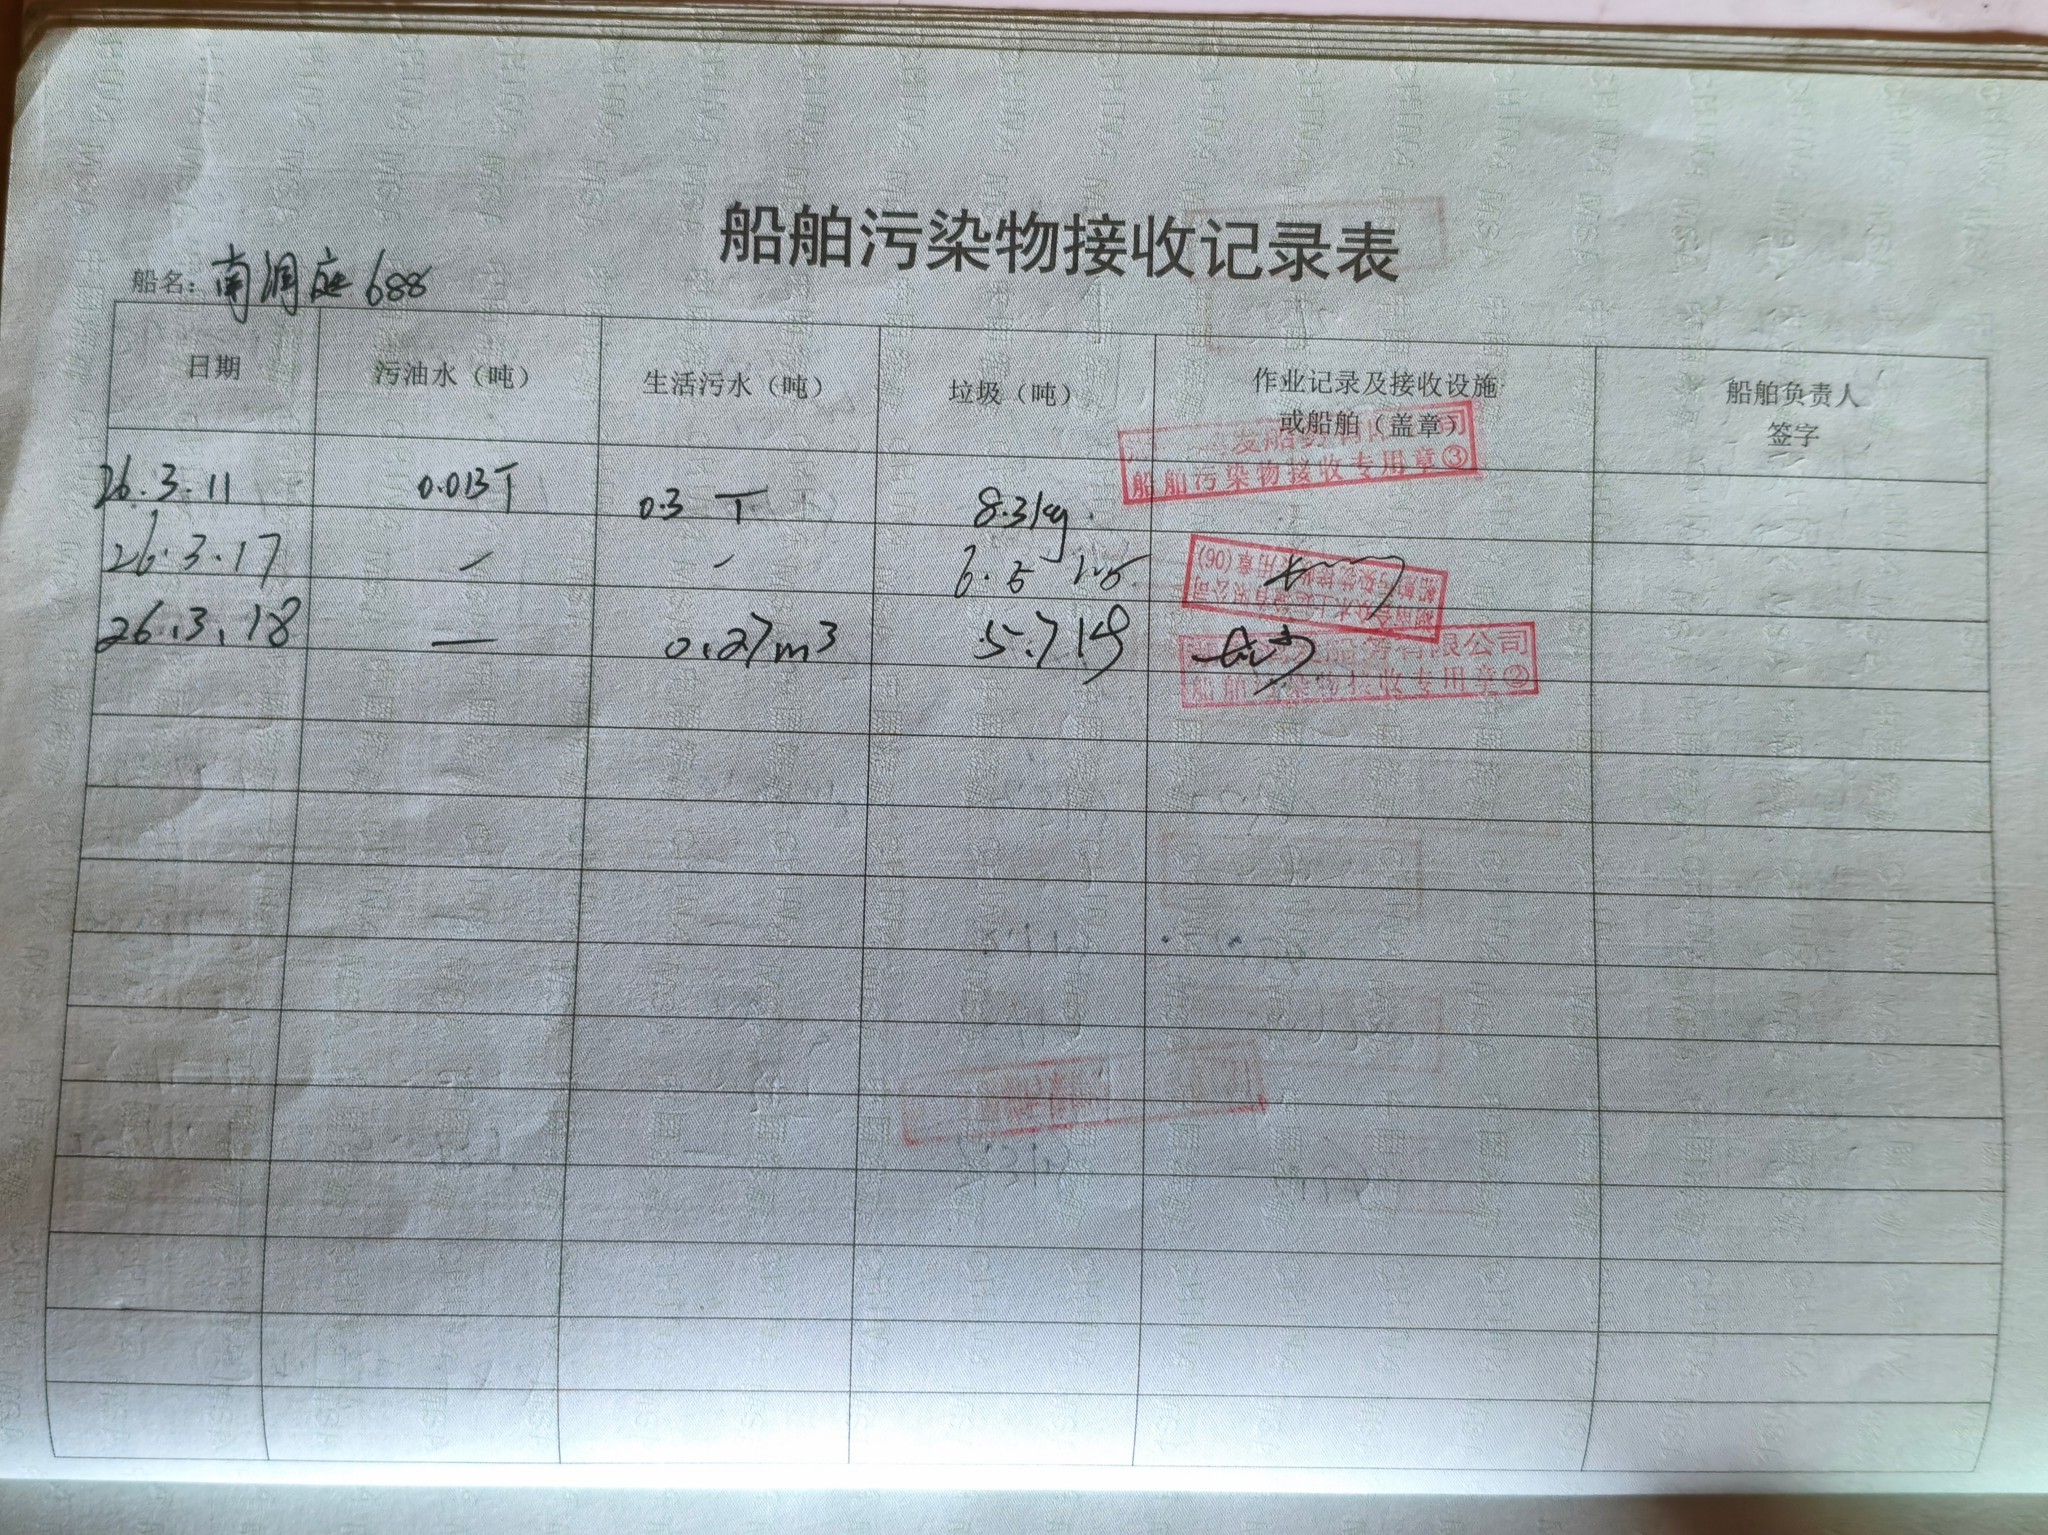 船舶污染物接收记录表
船名：南洞庭688
日期 污油水（吨） 生活污水（吨） 垃圾（吨） 作业记录及接收设施或船舶（盖章） 船舶负责人签字
26.3.11 0.013T 0.3 T 8.3kg
船舶污染物接收专用章③
26.3.17 - - 6.5
船舶污染物接收专用章(06)
26.3.18 — 0.27m3 5.7kg
有限公司
船舶污染物接收专用章②